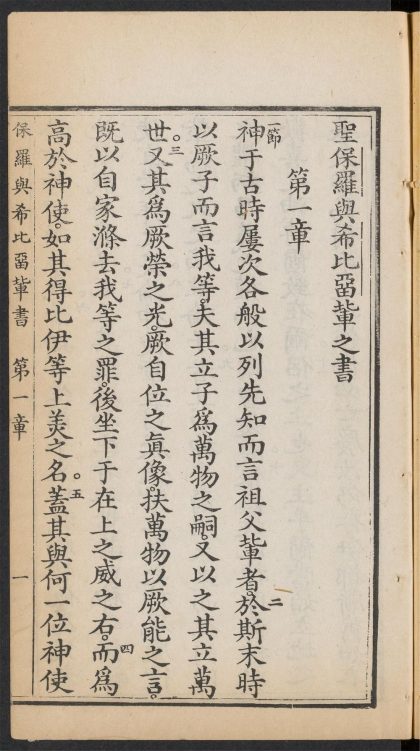 聖保羅與希比畱軰之書
第一章
一節神于古時屢次各般以列先知而言祖父軰者。二於斯末時
以厥子而言我等。夫其立子爲萬物之嗣。又以之其立萬
世。三又其爲厥榮之光。厥自位之眞像。扶萬物以厥能之言。
既以自家滌去我等之罪。後坐下于在上之威之右。四而爲
高於神使。如其得比伊等上羙之名。五蓋其與何一位神使
保羅與希比畱軰書 第一章 一